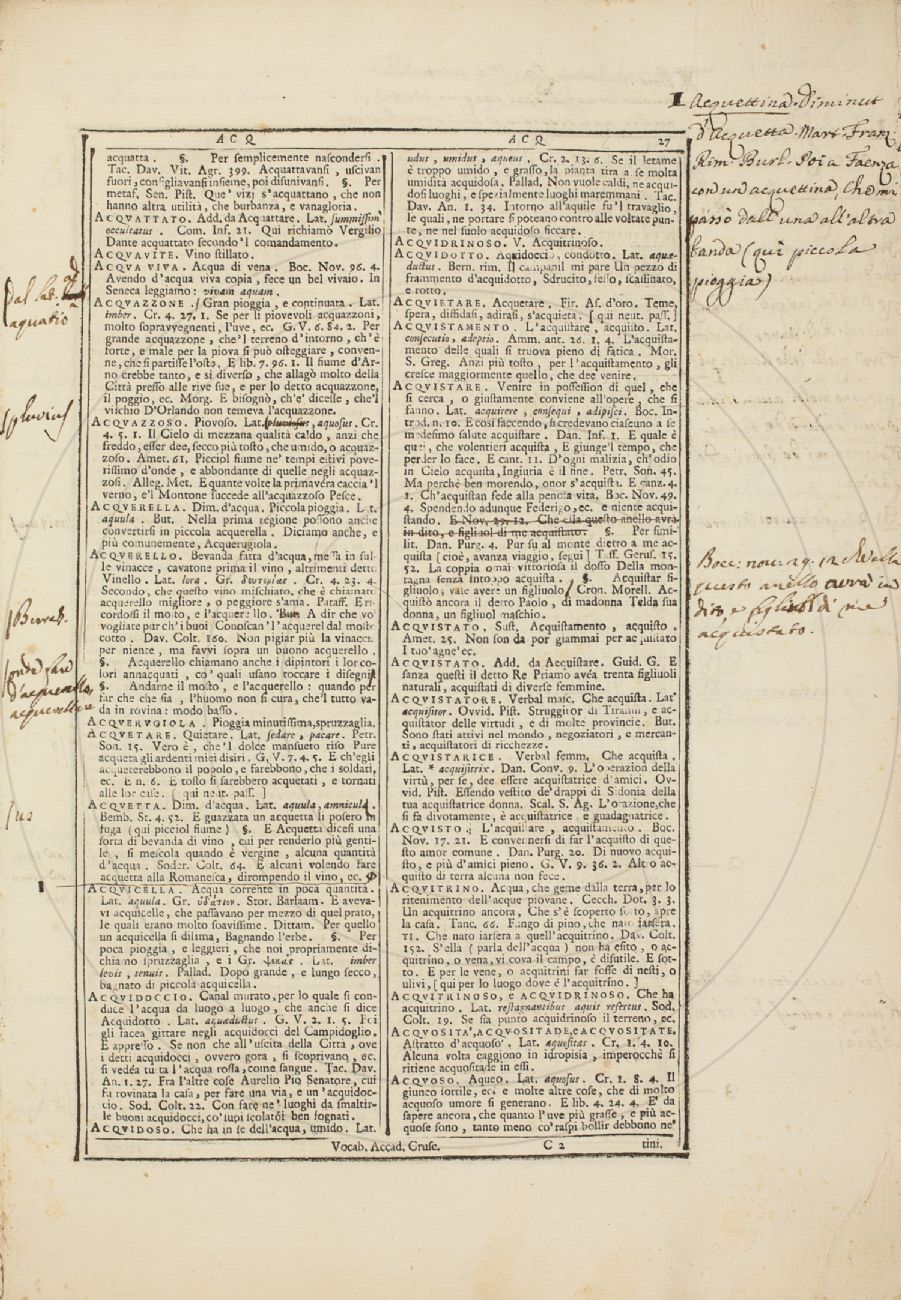 ACQ
acquatta. §. Per semplicemente nascondersi.
Tac. Dav. Vit. Agr. 399. Acquattavansi, uscivan
fuori, consigliavansi insieme, poi disunivansi. §. Per
metaf. Sen. Pist. Que' vizj s'acquattano, che non
hanno altra utilità, che burbanza, e vanagloria.
ACQVATTATO. Add. da Acquattare. Lat. summissim'
occultatus. Com. Inf. 21. Qui richiamò Vergilio
Dante acquattato secondo'l comandamento.
ACQVAVITE. Vino stillato.
ACQVA VIVA. Acqua di vena. Boc. Nov. 96. 4.
Avendo d'acqua viva copia, fece un bel vivaio. In
Seneca leggiamo: vivam aquam.
ACQVAZZONE. Gran pioggia, e continuata. Lat.
imber. Cr. 4. 27. 1. Se per li piovevoli acquazzoni,
molto sopravvegnenti, l'uve, ec. G. V. 6. 84. 2. Per
grande acquazzone, che'l terreno d'intorno, ch'è
forte, e male per la piova si può osteggiare, convenne,
che si partisse l'osto. E lib. 7. 96. 1. Il fiume d'Arno
crebbe tanto, e sì diverso, che allagò molto della
Città presso alle rive sue, e per lo detto acquazzone,
il poggio, ec. Morg. E bisognò, ch'e' dicesse, che'l
vischio D'Orlando non temeva l'acquazzone.
ACQVAZZOSO. Piovoso. Lat. pluviosus, aquosus. Cr.
4. 5. 1. Il Cielo di mezzana qualità caldo, anzi che
freddo, esser dee, secco più tosto, che umido, o acquazzoso.
Amet. 61. Picciol fiume ne' tempi estivi poverissimo
d'onde, e abbondante di quelle negli acquazzosi.
Alleg. Met. E quante volte la primavéra caccia'l
verno, e'l Montone succede all'acquazzoso Pesce.
ACQVERELLA. Dim. d'acqua. Piccola pioggia. Lat.
aquula. But. Nella prima regione possono anche
convertirsi in piccola acquerella. Diciamo anche, e
più comunemente, Acquerugiola.
ACQVERELLO. Bevanda fatta d'acqua, messa in sulle
vinacce, cavatone prima il vino, altrimenti detto
Vinello. Lat. lora. Gr. δευτερίας. Cr. 4. 23. 4.
Secondo, che questo vino mischiato, che è chiamato
acquerello migliore, o peggiore s'ama. Pataff. E ricordossi
il mosto, e l'acquerello. Bun. A dir che vogliate
pur ch'i buoi Conoscan l'acquerel dal mosto
cotto. Dav. Colt. 160. Non pigiar più la vinaccia
per niente, ma favvi sopra un buono acquerello.
§. Acquerello chiamano anche i dipintori i lor colori
annacquati, co' quali usano toccare i disegni.
§. Andarne il mosto, e l'acquerello: quando per
far che che sia, l'huomo non si cura, che'l tutto vada
in rovina: modo basso.
ACQVERVGIOLA. Pioggia minutissima, spruzzaglia.
ACQVETARE. Quietare. Lat. sedare, pacare. Petr.
Son. 15. Vero è, che'l dolce mansueto riso Pure
acqueta gli ardenti miei disiri. G. V. 7. 4. 5. E ch'egli
acqueterebbono il popolo, e farebbono, che i soldati,
ec. E n. 6. E tosto si sarebbero acquetati, e tornati
alle lor case. [qui neut. pass.]
ACQVETTA. Dim. d'acqua. Lat. aquula, amnicula.
Bemb. St. 4. 52. E guazzata un acquetta li posero in
fuga (qui picciol fiume) §. E Acquetta dicesi una
sorta di bevanda di vino, cui per renderlo più gentile,
si mescola quando è vergine, alcuna quantità
d'acqua. Soder. Colt. 64. E alcuni volendo fare
acquetta alla Romanesca, dirompendo il vino, ec.
ACQVICELLA. Acqua corrente in poca quantità.
Lat. aquula. Gr. ὑδάτιον. Stor. Barlaam. E avevavi
acquicelle, che passavano per mezzo di quel prato,
le quali erano molto soavissime. Dittam. Per quello
un acquicella si dilima, Bagnando l'erbe. §. Per
poca pioggia, e leggieri, che noi propriamente dichiamo
spruzzaglia, e i Gr. ψεκάς. Lat. imber
levis, tenuis. Pallad. Dopo grande, e lungo secco,
bagnato di piccola acquicella.
ACQVIDOCCIO. Canal murato, per lo quale si conduce
l'acqua da luogo a luogo, che anche si dice
Acquidotto. Lat. aquaeductus. G. V. 2. 1. 5. Feci
gli facea gittare negli acquidocci del Campidoglio.
E appresso. Se non che all'uscita della Città, ove
i detti acquidocci, ovvero gora, si scoprivano, ec.
si vedéa tutta l'acqua rossa, come sangue. Tac. Dav.
An. 1. 27. Fra l'altre cose Aurelio Pio Senatore, cui
fu rovinata la casa, per fare una via, e un'acquidoccio.
Sod. Colt. 22. Con fare ne' luoghi da smaltirle
buoni acquidocci, co'suoi scolatoi ben fognati.
ACQVIDOSO. Che ha in se dell'acqua, umido. Lat.
ACQ 27
udus, umidus, aqueus. Cr. 2. 13. 6. Se il letame
è troppo umido, e grasso, la pianta tira a se molta
umidità acquidosa. Pallad. Non vuole caldi, ne acquidosi
luoghi, e spezialmente luoghi maremmani. Tac.
Dav. An. 1. 34. Intorno all'aquile fu'l travaglio,
le quali, ne portare si poteano contro alle voltate punte,
ne nel suolo acquidoso ficcare.
ACQVIDRINOSO. V. Acquitrinoso.
ACQVIDOTTO. Aquidoccio, condotto. Lat. aquaeductus.
Bern. rim. Il campanil mi pare Un pezzo di
frammento d'acquidotto, Sdrucito, fesso, scassinato,
e rotto.
ACQVIETARE. Acquetare. Fir. As. d'oro. Teme,
spera, diffidasi, adirasi, s'acquieta. [qui neut. pass.]
ACQVISTAMENTO. L'acquistare, acquisto. Lat.
consecutio, adeptio. Amm. ant. 26. 1. 4. L'acquistamento
delle quali si truova pieno di fatica. Mor.
S. Greg. Anzi più tosto, per l'acquistamento, gli
cresce maggiormente quello, che dee venire.
ACQVISTARE. Venire in possession di quel, che
si cerca, o giustamente conviene all'opere, che si
fanno. Lat. acquirere, consequi, adipisci. Boc. Introd.
n. 10. E così faccendo, si credevano ciascuno a se
medesimo salute acquistare. Dan. Inf. 1. E quale è
quei, che volentieri acquista, E giunge'l tempo, che
perder lo face. E cant. 11. D'ogni malizia, ch'odio
in Cielo acquista, Ingiuria è il fine. Petr. Son. 45.
Ma perchè ben morendo, onor s'acquista. E canz. 4.
1. Ch'acquistan fede alla penosa vita. Boc. Nov. 49.
4. Spendendo adunque Federigo, ec. e niente acquistando.
E Nov. 29. 12. Che ella questo anello avrà
in dito, e figliuol di me acquistato. §. Per similit.
Dan. Purg. 4. Pur su al monte dietro a me acquista
[cioè, avanza viaggio, segui] Tass. Gerus. 15.
52. La coppia omai vittoriosa il dosso Della montagna
senza intoppo acquista. §. Acquistar figliuolo;
vale avere un figliuolo. Cron. Morell. Acquistò
ancora il detto Paolo, di madonna Telda sua
donna, un figliuol maschio.
ACQVISTATO, Sust. Acquistamento, acquisto.
Amet. 25. Non son da por giammai per acquistato
I tuo'agne'ec.
ACQVISTATO. Add. da Acquistare. Guid. G. E
sanza questi il detto Re Priamo avéa trenta figliuoli
naturali, acquistati di diverse femmine.
ACQVISTATORE. Verbal masc. Che acquista. Lat.
acquisitor. Ovvid. Pist. Struggitor di Tiranni, e acquistator
delle virtudi, e di molte provincie. But.
Sono stati attivi nel mondo, negoziatori, e mercanti,
acquistatori di ricchezze.
ACQVISTATRICE. Verbal femm. Che acquista.
Lat. * acquisitrix. Dan. Conv. 9. L'operazion della
virtù, per se, dee essere acquistatrice d'amici. Ovvid.
Pist. Essendo vestito de'drappi di Sidonia della
tua acquistatrice donna. Scal. S. Ag. L'orazione, che
si fa divotamente, è acquistatrice e guadagnatrice.
ACQVISTO. L'acquistare, acquistamento. Boc.
Nov. 17. 21. E convernersi di far l'acquisto di questo
amor comune. Dan. Purg. 20. Di nuovo acquisto,
e più d'amici pieno. G. V. 9. 36. 2. Altro acquisto
di terra alcuna non fece.
ACQVITRINO. Acqua, che geme dalla terra, per lo
ritenimento dell'acque piovane. Cecch. Dot. 3. 3.
Un acquitrino ancora, Che s'è scoperto sotto, apre
la casa. Tanc. 66. Fungo di pino, che nato iarsera.
TI. Che nato iarsera a quell'acquitrino. Dav. Colt.
152. S'ella (parla dell'acqua) non ha esito, o acquitrino,
o vena, vi cova il campo, è disutile. E sotto.
E per le vene, o acquitrini far fosse di nesti, o
ulivi, [qui per lo luogo dove è l'acquitrino.]
ACQVITRINOSO, e ACQVIDRINOSO. Che ha
acquitrino. Lat. restagnantibus aquis refertus. Sod.
Colt. 19. Se sia punto acquidrinoso il terreno, ec.
ACQVOSITA', ACQVOSITADE, e ACQVOSITATE.
Astratto d'acquoso. Lat. aquositas. Cr. 1. 4. 10.
Alcuna volta caggiono in idropisia, imperocchè si
ritiene acquositade in essi.
ACQVOSO. Aqueo. Lat. aquosus. Cr. 2. 8. 4. Il
giunco sottile, ec. e molte altre cose, che di molto
acquoso umore si generano. E lib. 4. 24. 4. E' da
sapere ancora, che quanto l'uve più grasse, e più acquose
sono, tanto meno co'raspi bollir debbono ne'
Vocab. Accad. Cruse. C 2 tini.
Acquettina. Diminut
d'Acquetta. Mart. Franz.
Rim. Burl. Poi a Faenza
con un'acquettina, che mi
passò dall'una all'altra
banda (qui piccola
pioggia)
Bocc. nov. 29. 12. che ella
questo anello avrà in
dito, e figliuol di me
acquistato.
dal lat.
aquatio
pluvius
onde fare
d'acquerello,
acquerellare
us